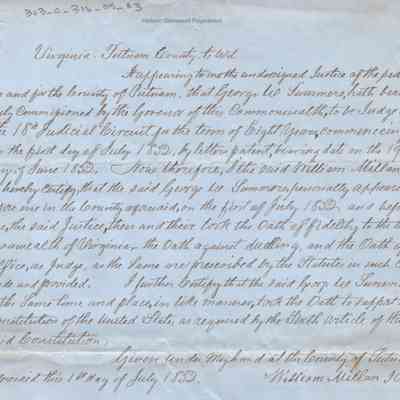 Historic Glenwood Foundation
Virginia Putnam County to Wit
It appearing to me the undersigned Justice of the peace
and for the County of Putnam, that George W Summers, hath been
Commissioned by the Governor of this Commonwealth, to be Judge
18th Judicial Circuit for the term of Eight Years, commencing
the first day of July 1852, by letters patent, bearing date on the 19
of June 1852. Now therefore, I the said William Millan
hereby certify, that the said George W Summers personally appeared
me in the County aforesaid, on the first of July 1852, and before
the said Justice, then and there took the Oath of fidelity to the
of Virginia, the Oath against duelling, and the Oath of
Office, as Judge, as the same are prescribed by the Statutes in such
made and provided. I further Certify that the said George W Summers
the same time and place, in like manner, took the Oath to support
Constitution of the United States, as required by the Sixth article of the
said Constitution.
Given under my hand at the County of Putnam
aforesaid this 1st day of July 1852.
William Millan